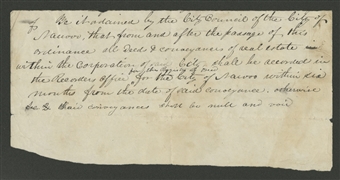 Be it ordained by the City Council of the City of
Nauvoo that from and after the passage of this
ordinance all Deeds & conveyances of real estate
within the Corporation of said City shall be recorded in
the Recorders office for the City of Nauvoo within six
months from the date of said conveyance. otherwise
conveyances shall be null and void